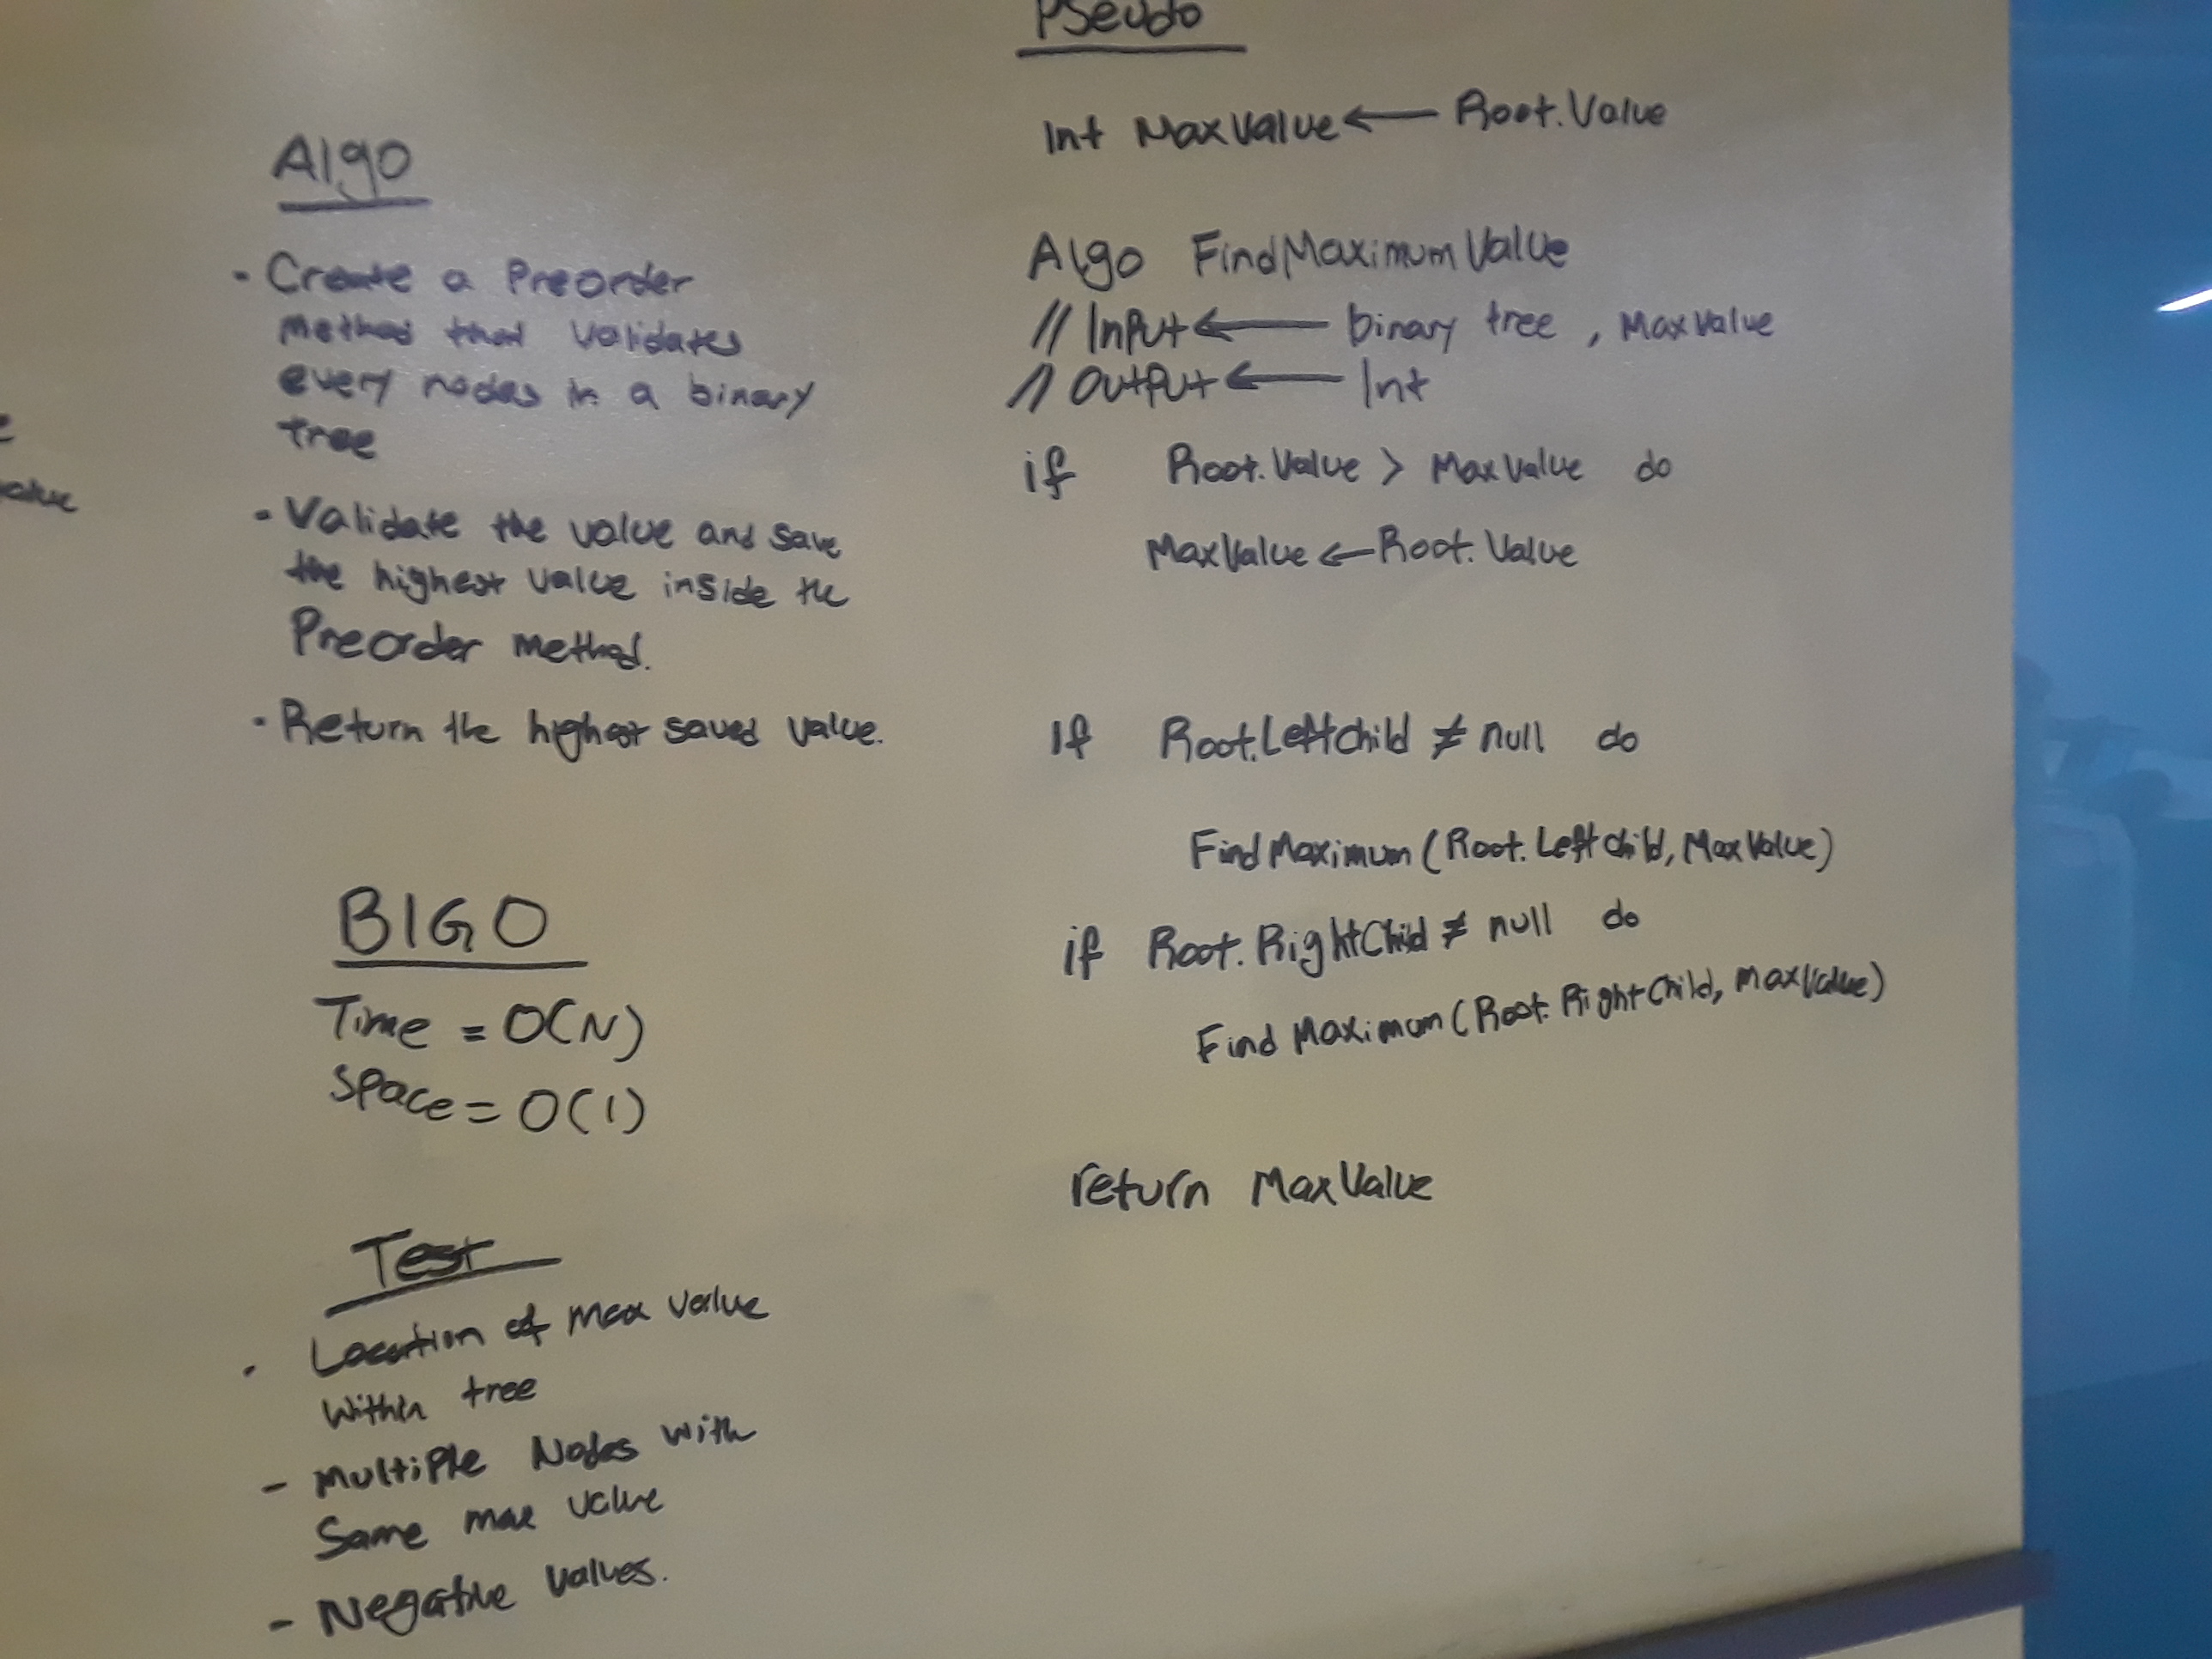 Algo
- Create a Preorder
method that validates
every nodes in a binary
tree
- Validate the value and save
the highest value inside the
Preorder method.
- Return the highest saved value.
BIGO
Time = O(N)
Space = O(1)
Test
- Location of max value
Within tree
- Multiple Nodes with
Same max value
- Negative values.
Pseudo
Int MaxValue ← Root.Value
Algo FindMaximumValue
// Input ← binary tree , MaxValue
// Output ← Int
if Root.Value > MaxValue do
MaxValue ← Root.Value
if Root.LeftChild ≠ null do
FindMaximum (Root.LeftChild, MaxValue)
if Root.RightChild ≠ null do
Find Maximum (Root.RightChild, MaxValue)
return MaxValue